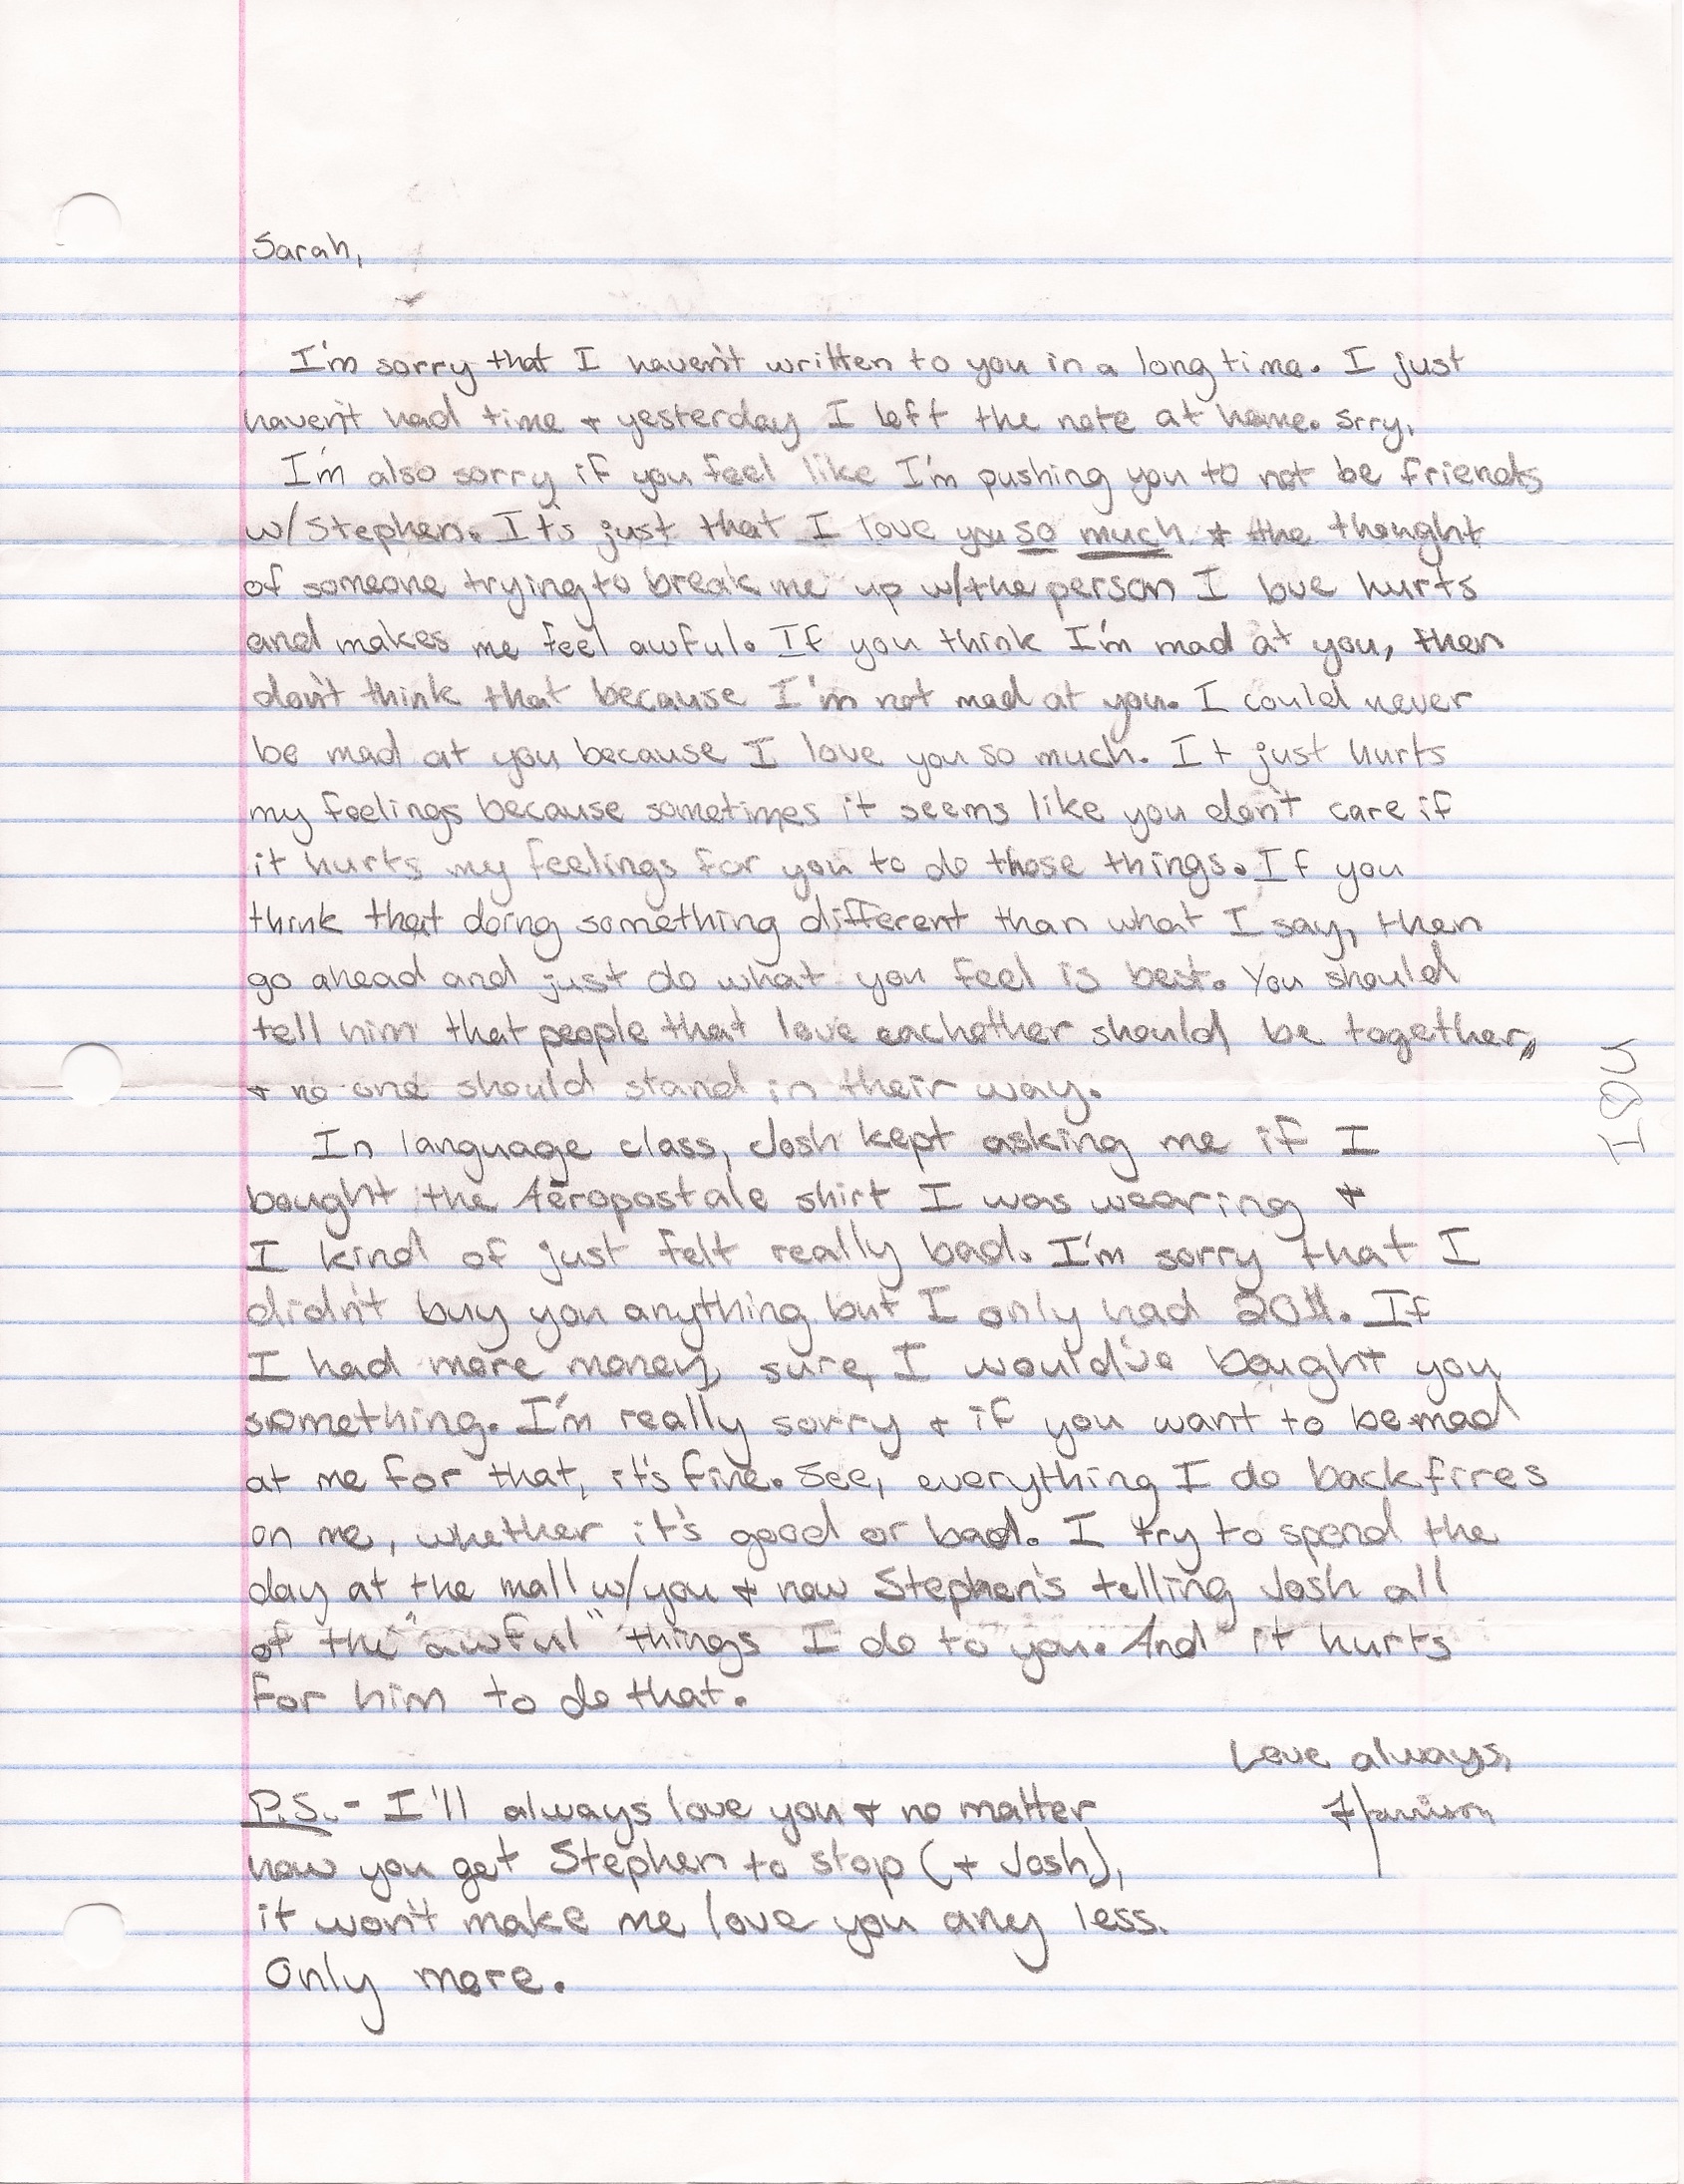 Sarah,
I'm sorry that I haven't written to you in a long time. I just
haven't had time + yesterday I left the note at home. Srry.
I'm also sorry if you feel like I'm pushing you to not be friends
w/Stephen. It's just that I love you so much + the thought
of someone trying to break me up w/the person I love hurts
and makes me feel awful. If you think I'm mad at you, then
don't think that because I'm not mad at you. I could never
be mad at you because I love you so much. It just hurts
my feelings because sometimes it seems like you don't care if
it hurts my feelings for you to do those things. If you
think that doing something different than what I say, then
go ahead and just do what you feel is best. You should
tell him that people that love eachother should be together,
+ no one should stand in their way.
In language class, Josh kept asking me if I
bought the Aéropostale shirt I was wearing +
I kind of just felt really bad. I'm sorry that I
didn't buy you anything but I only had 20$. If
I had more money, sure, I would've bought you
something. I'm really sorry + if you want to be mad
at me for that, it's fine. See, everything I do backfires
on me, whether it's good or bad. I try to spend the
day at the mall w/you + now Stephen's telling Josh all
of the "awful" things I do to you. And it hurts
for him to do that.
Love always,
Harrison
P.S.- I'll always love you + no matter
how you get Stephen to stop (+ Josh),
it won't make me love you any less.
Only more.
I ♡ U